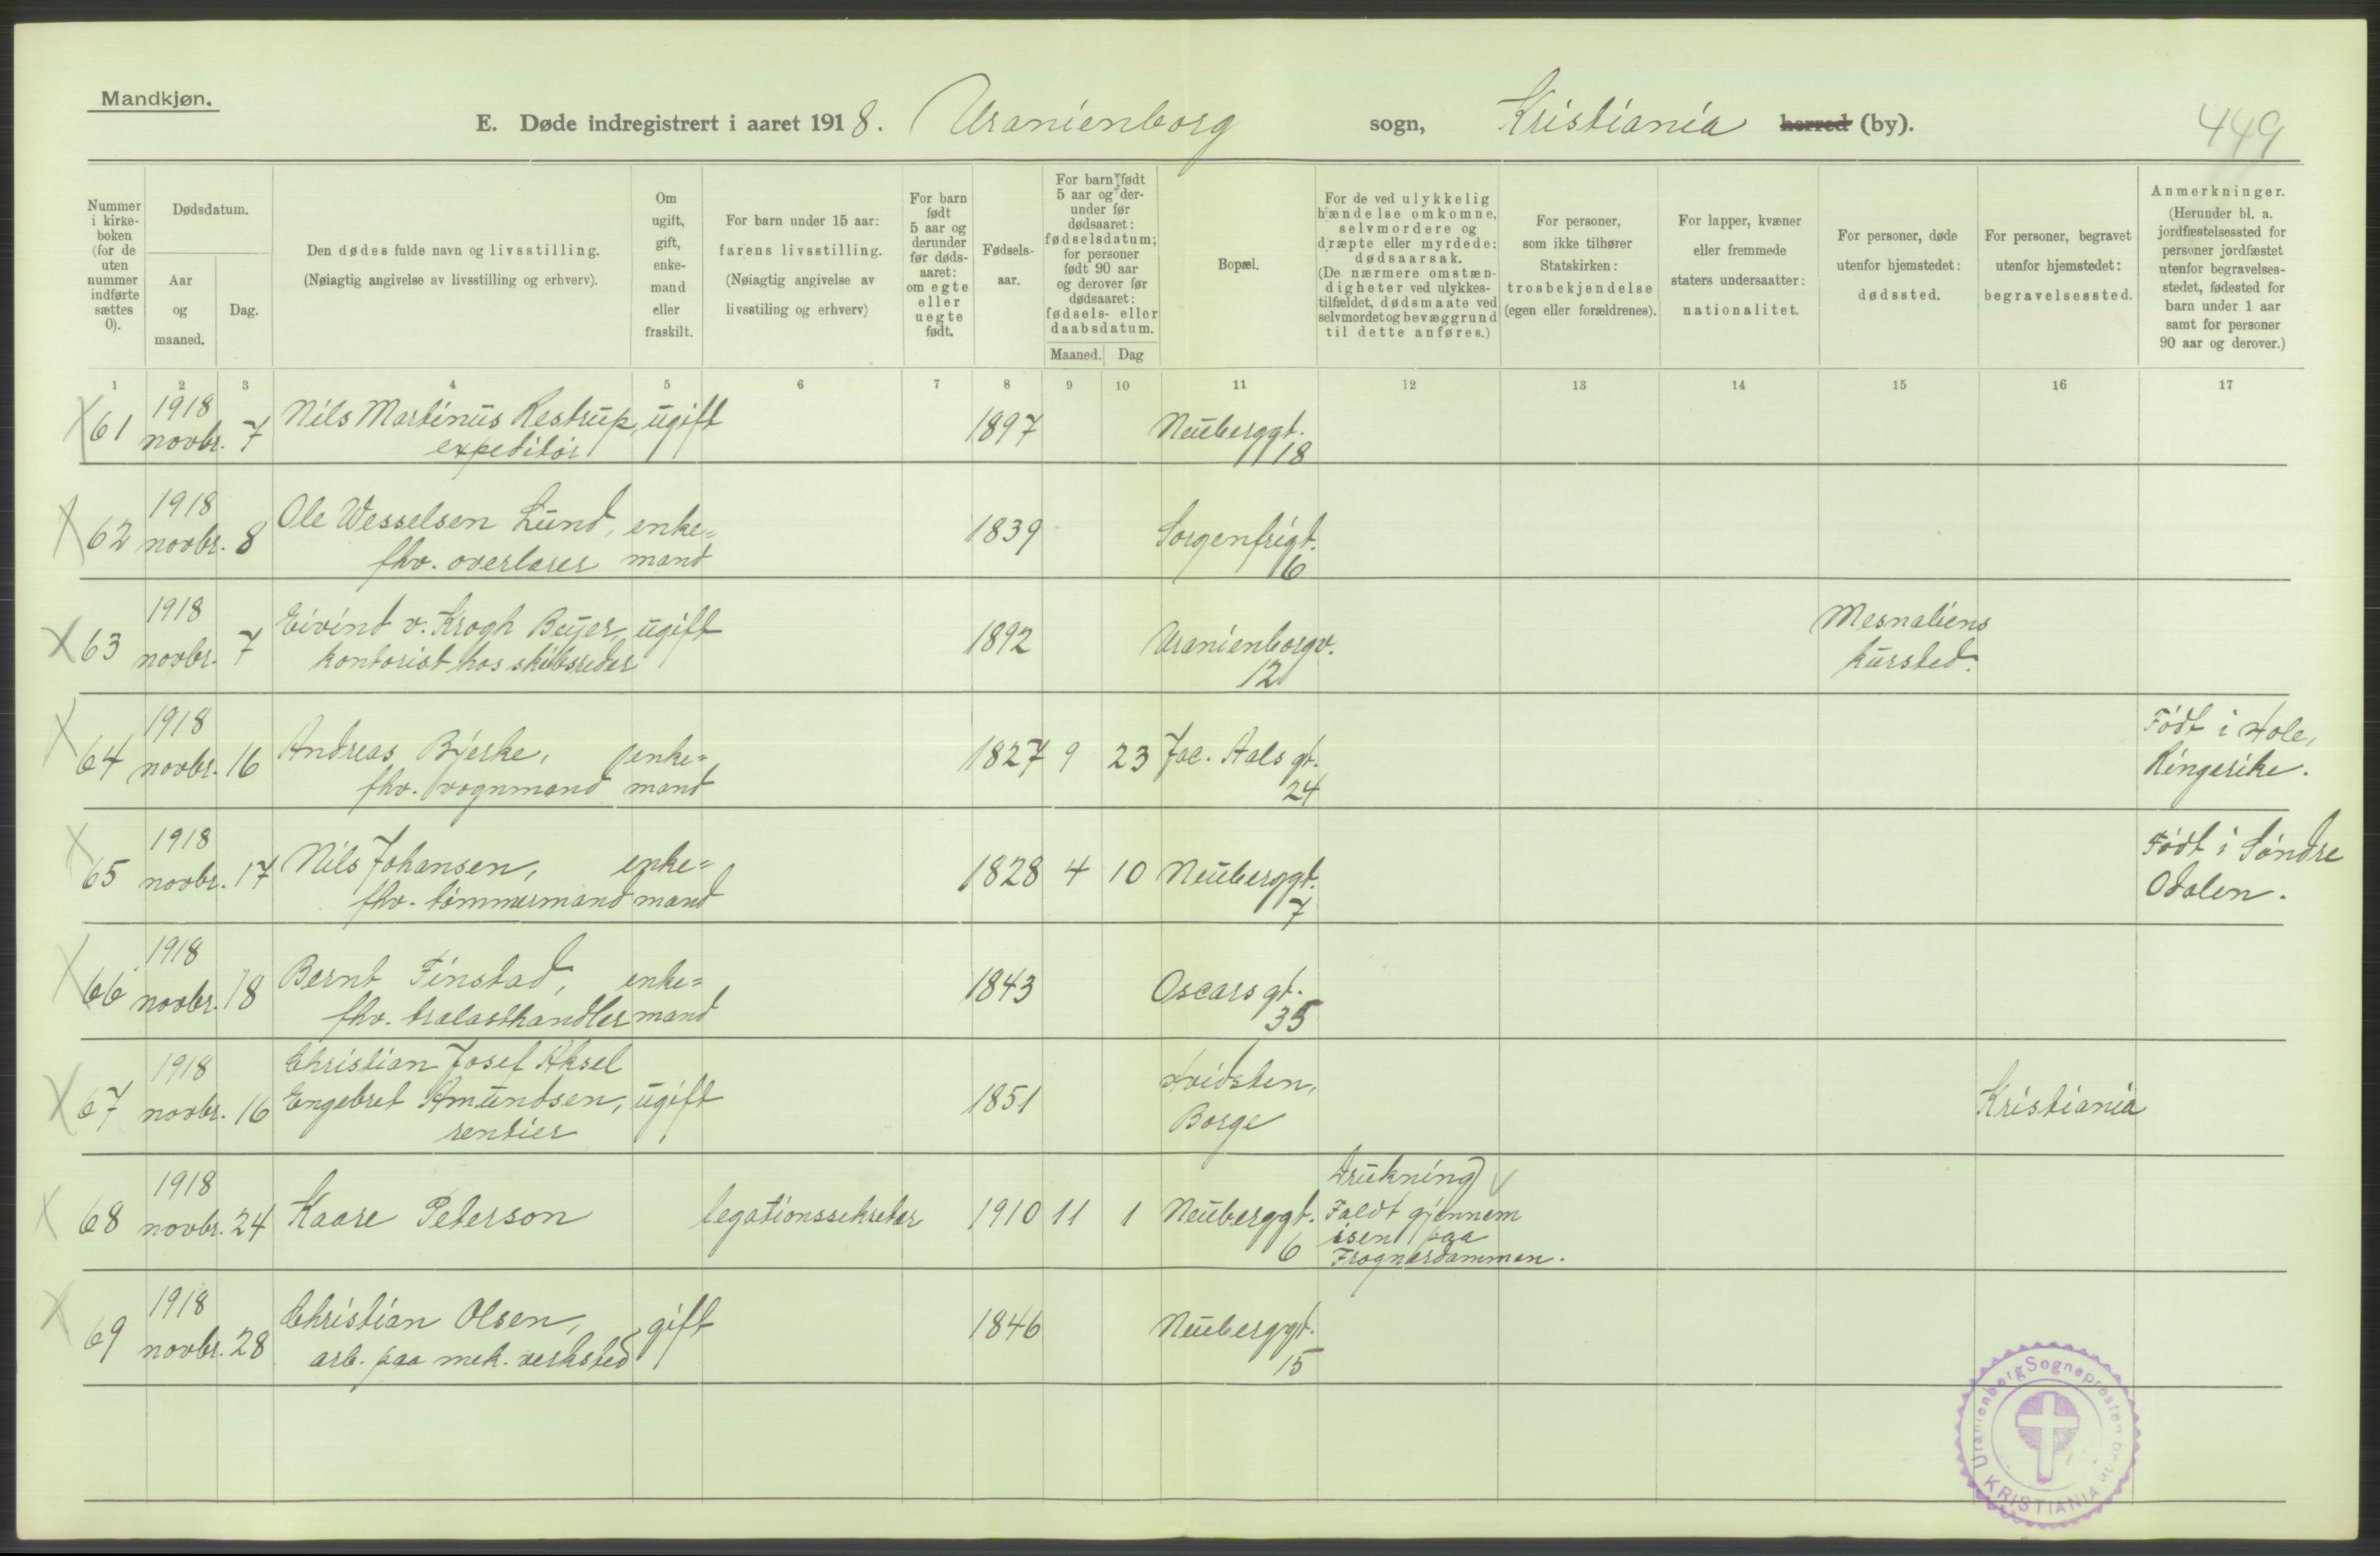 Mandkjøn.
E. Døde indregistrert i aaret 1918. Uranienborg sogn, Kristiania herred (by).
449
Nummer i kirke-boken (for de uten nummer indførte sættes 0).
Dødsdatum.
Aar og maaned.
Dag.
Den dødes fulde navn og livsstilling.
(Nøiagtig angivelse av livsstilling og erhverv).
Om ugift, gift, enke-mand eller fraskilt.
For barn under 15 aar: farens livsstilling.
(Nøiagtig angivelse av livsstiling og erhverv)
For barn født 5 aar og derunder før døds-aaret: om egte eller uegte født.
Fødsels-aar.
For barn født 5 aar og der-under før dødsaaret: fødselsdatum; for personer født 90 aar og derover før dødsaaret: fødsels- eller daabsdatum.
Maaned. Dag
Bopæl.
For de ved ulykkelig hændelse omkomne, selvmordere og dræpte eller myrdede: dødsaarsak.
(De nærmere omstæn-digheter ved ulykkes-tilfældet, dødsmaate ved selvmordet og bevæggrund til dette anføres.)
For personer, som ikke tilhører Statskirken: trosbekjendelse (egen eller forældrenes).
For lapper, kvæner eller fremmede staters undersaatter: nationalitet.
For personer, døde utenfor hjemstedet: dødssted.
For personer, begravet utenfor hjemstedet: begravelsessted.
Anmerkninger.
(Herunder bl. a. jordfæstelsessted for personer jordfæstet utenfor begravelses-stedet, fødested for barn under 1 aar samt for personer 90 aar og derover.)
1 2 3 4 5 6 7 8 9 10 11 12 13 14 15 16 17
1918
61 novbr. 7 Nils Martinus Restrup, ugift 1897 Neuberggt.
expeditør 18
1918
62 novbr. 8 Ole Wesselsen Lund, enke= 1839 Sorgenfrigt.
fhv. overlærer mand 6
1918
63 novbr. 7 Eivind v. Krogh Beyer, ugift 1892 Uranienborgv. Mesnaliens
kontorist hos skibsreder 12 kursted.
1918
64 novbr. 16 Andreas Bjerke, enke= 1827 9 23 Jac. Aals gt. Født i Hole,
fhv. vognmand mand 24 Ringerike.
1918
65 novbr. 17 Nils Johansen, enke= 1828 4 10 Neuberggt. Født i Søndre
fhv. tømmermand mand 7 Odalen.
1918
66 novbr. 18 Bernt Finstad, enke= 1843 Oscars gt.
fhv. trælasthandler mand 35
1918 Christian Josef Aksel
67 novbr. 16 Engebret Amundsen, ugift 1851 Hvidsten, Kristiania
rentier Borge
1918 Drukning
68 novbr. 24 Kaare Peterson legationssekretær 1910 11 1 Neuberggt. Faldt gjennem
6 isen paa
Frognerdammen.
1918
69 novbr. 28 Christian Olsen, gift 1846 Neuberggt.
arb. paa mek. verksted 15
Uranienborg Sogneprestembede
KRISTIANIA